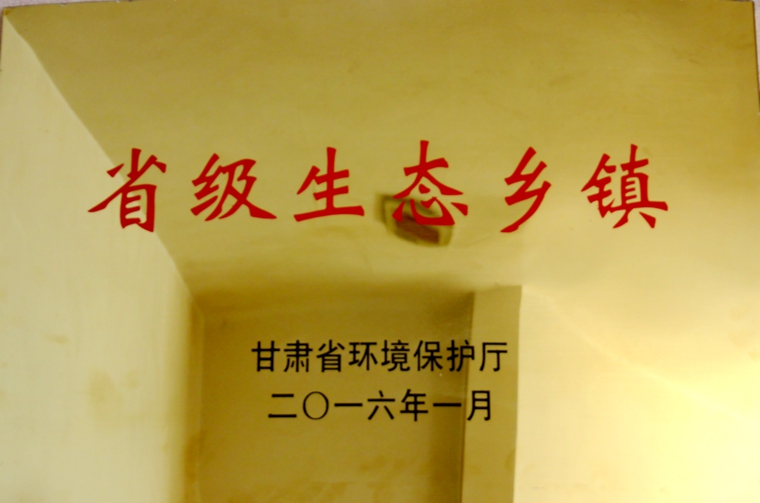 省级生态乡镇
甘肃省环境保护厅
二〇一六年一月